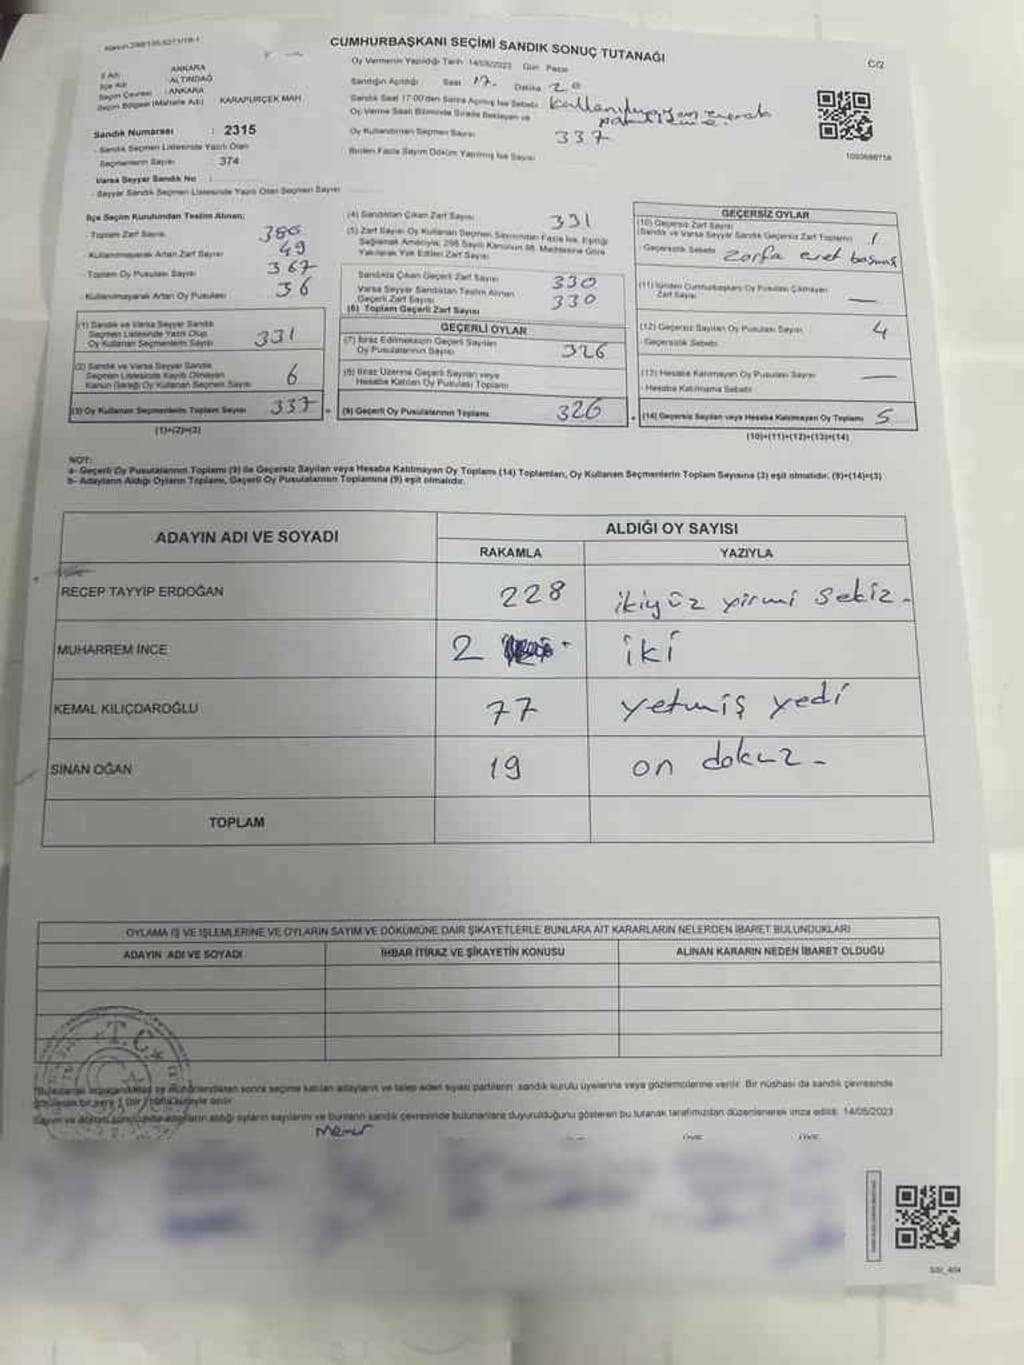 CUMHURBAŞKANI SEÇİMİ SANDIK SONUÇ TUTANAĞI
C/2
İl Adı : ANKARA
İlçe Adı : ALTINDAĞ
Seçim Çevresi : ANKARA
Seçim Bölgesi (Mahalle Adı) : KARAPÜRÇEK MAH.
Sandık Numarası : 2315
- Sandık Seçmen Listesinde Yazılı Olan
Seçmenlerin Sayısı : 374
Varsa Seyyar Sandık No :
- Seyyar Sandık Seçmen Listesinde Yazılı Olan Seçmen Sayısı
Oy Vermenin Yapıldığı Tarih 14/05/2023 Gün Pazar
Sandığın Açıldığı Saat 17. Dakika 20
Sandık Saat 17:00'den Sonra Açılmış İse Sebebi kullanılmayan
Oy Verme Saati Bitiminde Sırada Bekleyen ve
Oy Kullandırılan Seçmen Sayısı 337
Birden Fazla Sayım Döküm Yapılmış İse Sayısı
İlçe Seçim Kurulundan Teslim Alınan;
- Toplam Zarf Sayısı 380
- Kullanılmayarak Artan Zarf Sayısı 49
- Toplam Oy Pusulası Sayısı 367
- Kullanılmayarak Artan Oy Pusulası 36
(1) Sandık ve Varsa Seyyar Sandık
Seçmen Listesinde Yazılı Olup
Oy Kullanan Seçmenlerin Sayısı 331
(2) Sandık ve Varsa Seyyar Sandık
Seçmen Listesinde Kayıtlı Olmayan
Kanun Gereği Oy Kullanan Seçmen Sayısı 6
(3) Oy Kullanan Seçmenlerin Toplam Sayısı 337
(1)+(2)=(3)
(4) Sandıktan Çıkan Zarf Sayısı 331
(5) Zarf Sayısı Oy Kullanan Seçmen Sayısından Fazla İse, Eşitliği
Sağlamak Amacıyla, 298 Sayılı Kanunun 98. Maddesine Göre
Yakılarak Yok Edilen Zarf Sayısı
Sandıkta Çıkan Geçerli Zarf Sayısı 330
Varsa Seyyar Sandıktan Teslim Alınan
Geçerli Zarf Sayısı 330
(6) Toplam Geçerli Zarf Sayısı
GEÇERLİ OYLAR
(7) İtiraz Edilmeksizin Geçerli Sayılan
Oy Pusulalarının Sayısı 326
(8) İtiraz Üzerine Geçerli Sayılan veya
Hesaba Katılan Oy Pusulası Toplamı
(9) Geçerli Oy Pusulalarının Toplamı 326
GEÇERSİZ OYLAR
(10) Geçersiz Zarf Sayısı
(Sandık ve Varsa Seyyar Sandık Geçersiz Zarf Toplamı) 1
- Geçersizlik Sebebi zarfa evet basmış
(11) İçinden Cumhurbaşkanı Oy Pusulası Çıkmayan
Zarf Sayısı —
(12) Geçersiz Sayılan Oy Pusulası Sayısı 4
- Geçersizlik Sebebi
(13) Hesaba Katılmayan Oy Pusulası Sayısı —
- Hesaba Katılmama Sebebi
(14) Geçersiz Sayılan veya Hesaba Katılmayan Oy Toplamı 5
(10)+(11)+(12)+(13)=(14)
NOT:
a- Geçerli Oy Pusulalarının Toplamı (9) ile Geçersiz Sayılan veya Hesaba Katılmayan Oy Toplamı (14) Toplamları, Oy Kullanan Seçmenlerin Toplam Sayısına (3) eşit olmalıdır. (9)+(14)=(3)
b- Adayların Aldığı Oyların Toplamı, Geçerli Oy Pusulalarının Toplamına (9) eşit olmalıdır.
ADAYIN ADI VE SOYADI
ALDIĞI OY SAYISI
RAKAMLA YAZIYLA
RECEP TAYYİP ERDOĞAN 228 ikiyüz yirmi sekiz.
MUHARREM İNCE 2 iki
KEMAL KILIÇDAROĞLU 77 yetmiş yedi
SİNAN OĞAN 19 on dokuz.
TOPLAM
OYLAMA İŞ VE İŞLEMLERİNE VE OYLARIN SAYIM VE DÖKÜMÜNE DAİR ŞİKAYETLERLE BUNLARA AİT KARARLARIN NELERDEN İBARET BULUNDUKLARI
ADAYIN ADI VE SOYADI İHBAR İTİRAZ VE ŞİKAYETİN KONUSU ALINAN KARARIN NEDEN İBARET OLDUĞU
T.C.
sonra seçime katılan adayların ve talep eden siyasi partilerin sandık kurulu üyelerine veya gözlemcilerine verilir. Bir nüshası da sandık çevresinde
aldığı oyların sayılarını ve bunların sandık çevresinde bulunanlara duyurulduğunu gösteren bu tutanak tarafımızdan düzenlenerek imza edildi. 14/05/2023
Memur